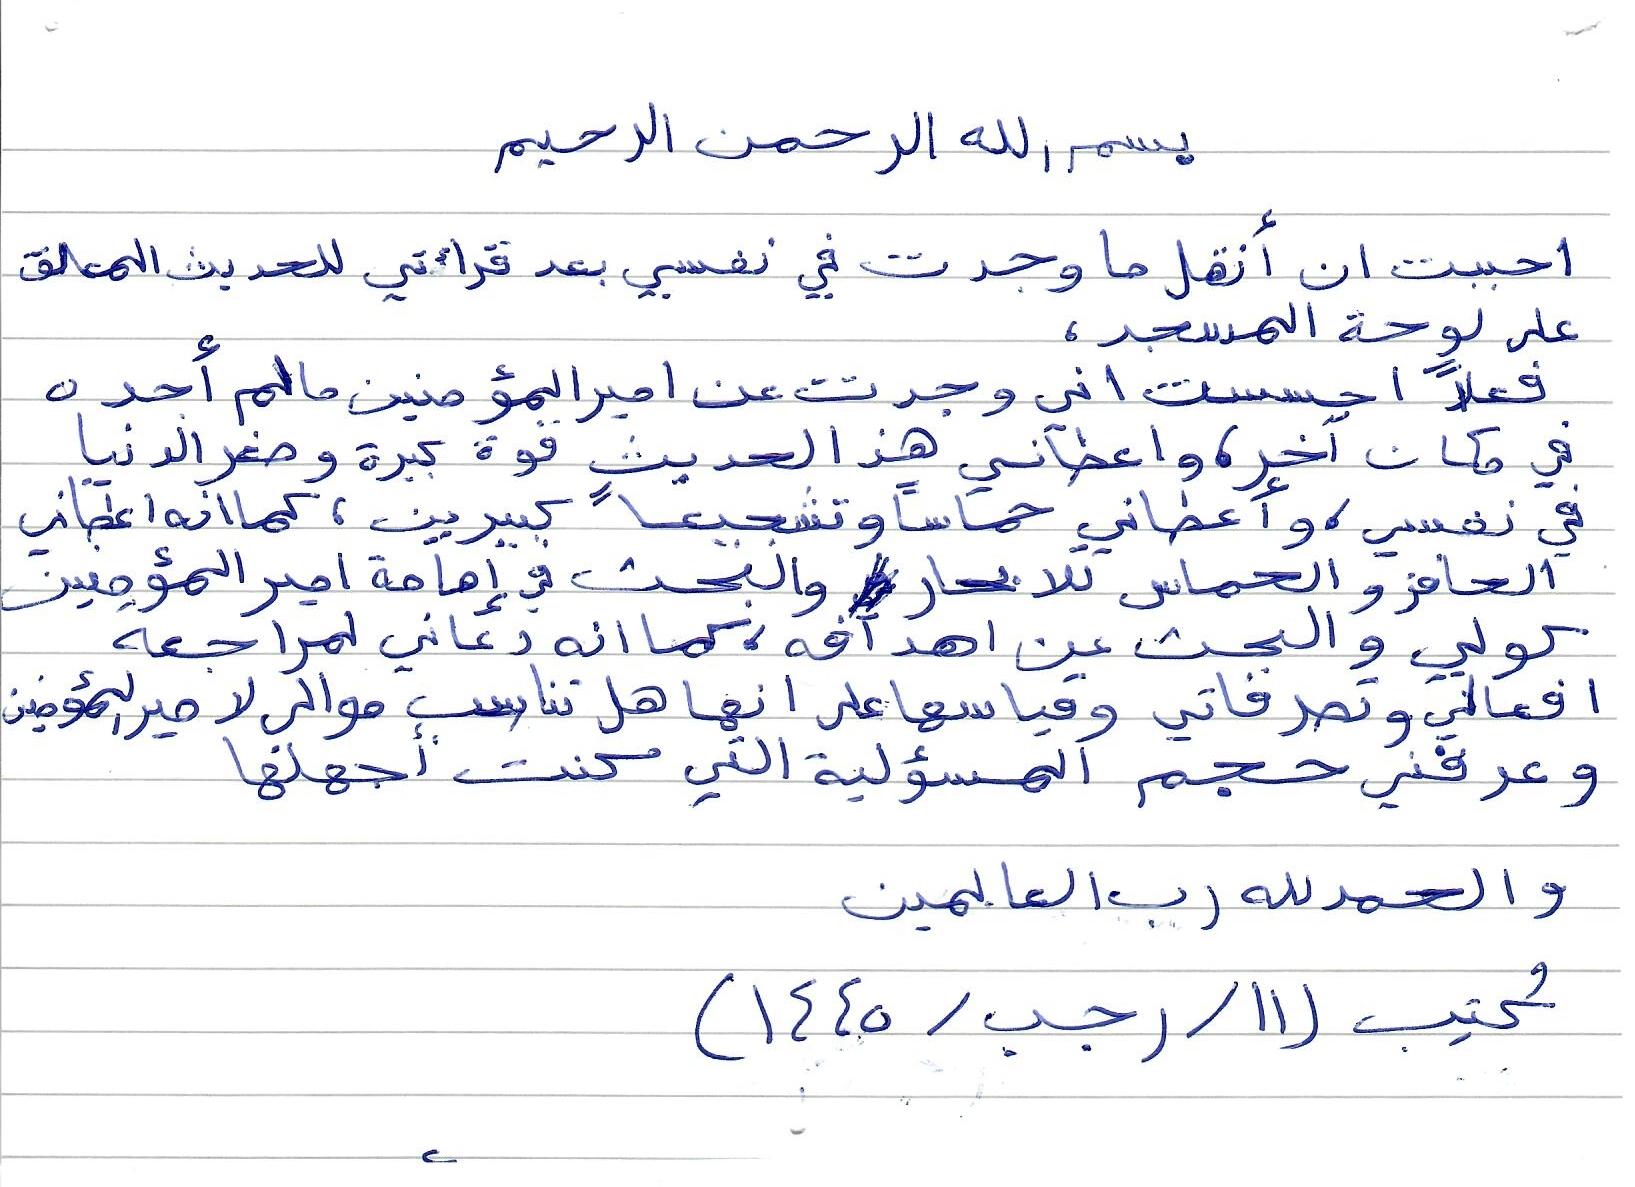 بسم الله الرحمن الرحيم
احببت ان أنقل ما وجدت في نفسي بعد قرائتي للحديث المعلق
على لوحة المسجد ،
فعلاً احسست اني وجدت عن امير المؤمنين مالم أجده
في مكان آخر ، واعطاني هذ الحديث قوة كبيرة وصغر الدنيا
في نفسي ، وأعطاني حماساً وتشجيعاً كبيرين ، كما انه اعطاني
الحافز والحماس للابحار والبحث في إمامة امير المؤمنين
كولي والبحث عن اهدافه ، كما انه دعاني لمراجعه
افعالي وتصرفاتي وقياسها على انها هل تناسب موالى لامير المؤمنين
وعرفني حجم المسؤلية التي كنت أجهلها
والحمد لله رب العالمين
كُتب (١١/رجب/١٤٤٥)